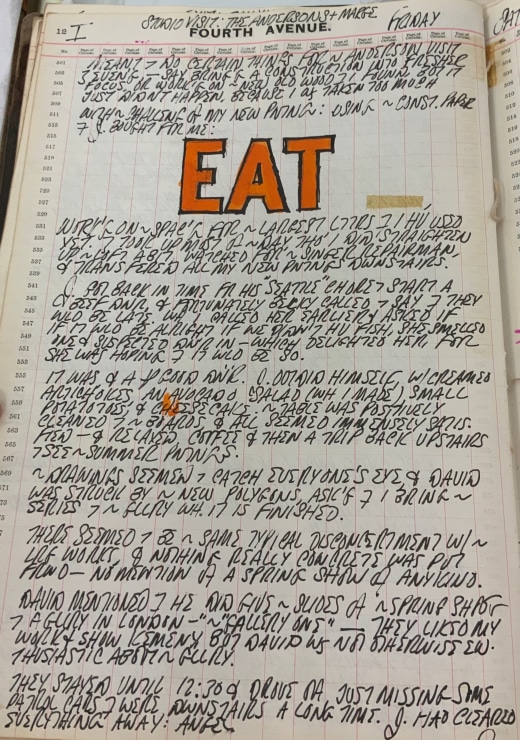 STUDIO VISIT: THE ANDERSONS + MARGE FRIDAY
12 I FOURTH AVENUE.
MEANT 7 DO CERTAIN THINGS FOR ~ ANDERSON VISIT
- SAY BRING A CONSTRUCTION INTO FRESHER
FOCUS, OR WORK ON ~ NEW OLD WOOD I FOUND. BUT IT
JUST DIDN'T HAPPEN, BECAUSE I WAS TAKEN TOO MUCH
WITH ~ CHALLENGE OF MY NEW PNTNG: USING ~ CONST. PAPER
7 J. BOUGHT FOR ME:
EAT
WORK'G ON ~ SPAC'G FOR ~ LARGEST LTTRS 7 I HV USED
YET. IT TOOK UP MOST OF ~ DAY, THO' I DID STRAIGHTEN
UP ~ LOFT A BIT, WATCHED FOR ~ SINGER REPAIRMAN,
& TRANSFERED ALL MY NEW PNTNGS DOWNSTAIRS.
J. GOT BACK IN TIME FR HIS SEATTLE CHORE 7 START A
BEEF DNR & FORTUNATELY BECKY CALLED 7 SAY 7 THEY
WLD BE LATE. WE CALLED HER EARLIER & ASKED IF
IT WLD BE ALRIGHT IF WE DIDN'T HV FISH, SHE SMELLED
ONE & SUSPECTED DNR IN - WHICH DELIGHTED HER, FOR
SHE WAS HOPING 7 IT WLD BE SO.
IT WAS & A GOOD DNR. J. OUTDID HIMSELF, W/CREAMED
ARTICHOKES, AN AVOCADO SALAD (WH I MADE) SMALL
POTATOTOES, & CHEESECAKE. ~ TABLE WAS POSITIVELY
CLEANED 7 ~ BOARDS & ALL SEEMED IMMENSELY SATIS-
FIED - & RELAXED. COFFEE & THEN A TRIP BACK UPSTAIRS
7 SEE ~ SUMMER PNTNGS.
~ DRAWINGS SEEMED 7 CATCH EVERYONE'S EYE, & DAVID
WAS STRUCK BY ~ NEW POLYGONS, ASK'G 7 I BRING ~
SERIES 7 ~ GLLRY WH. IT IS FINISHED.
THERE SEEMED 7 BE ~ SAME TYPICAL DISCONCERTMENT W/ ~
LRG WORKS & NOTHING REALLY CONCRETE WAS PUT
FRWD - NO MENTION OF A SPRING SHOW OF ANY KIND.
DAVID MENTIONED 7 HE DID GIVE ~ SLIDES OF ~ SPRING SHOW
7 A GLLRY IN LONDON - "~ "GALLERY ONE" — THEY LIKED MY
WORK & SHOW KEMENY BUT DAVID WS NOT OTHERWISE EN-
THUSIASTIC ABOUT ~ GLLRY.
THEY STAYED UNTIL 12:30 & DROVE OFF, JUST MISSING SOME
PATROL CARS 7 WERE DOWNSTAIRS A LONG TIME. J. HAD CLEARED
EVERYTHING AWAY: ANGEL